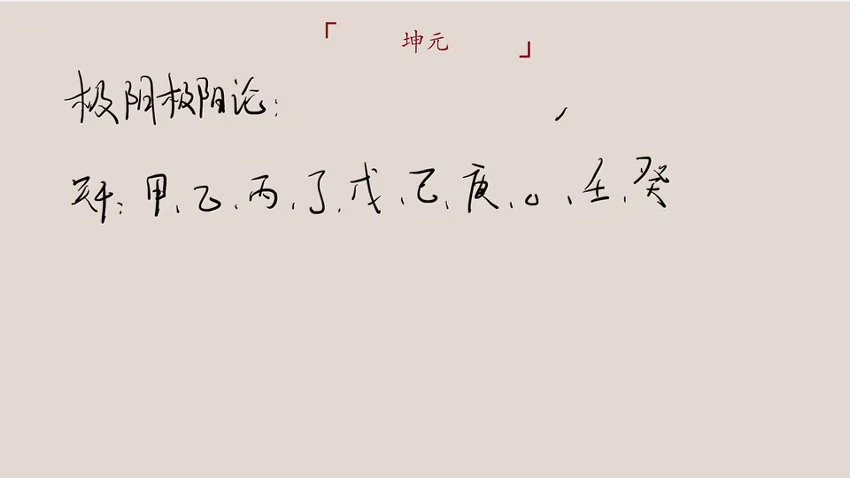 「 坤元 」
极阴极阳论:
天干:甲、乙、丙、丁、戊、己、庚、。、壬、癸